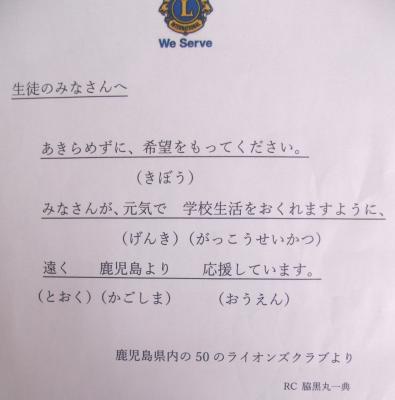 L
INTERNATIONAL
We Serve
生徒のみなさんへ
あきらめずに、希望をもってください。
（きぼう）
みなさんが、元気で　学校生活をおくれますように、
（げんき）（がっこうせいかつ）
遠く　鹿児島より　応援しています。
（とおく）（かごしま）　（おうえん）
鹿児島県内の 50 のライオンズクラブより
RC 脇黒丸一典